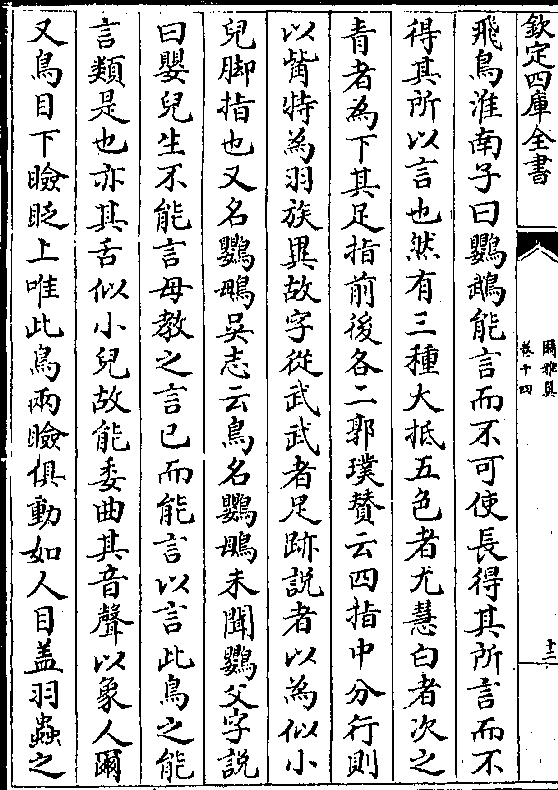 欽定四庫全書
爾雅翼
卷十四
十二
飛鳥淮南子曰鸚鵡能言而不可使長得其所言而不
得其所以言也然有三種大抵五色者尤慧白者次之
青者為下其足指前後各二郭璞賛云四指中分行則
以觜特為羽族異故字從武武者足跡説者以為似小
兒脚指也又名鸚䳇吳志云鳥名鸚䳇未聞鸚父字説
曰嬰兒生不能言母教之言已而能言以言此鳥之能
言類是也亦其舌似小兒故能委曲其音聲以象人爾
又鳥目下瞼眨上唯此鳥兩瞼俱動如人目盖羽蟲之